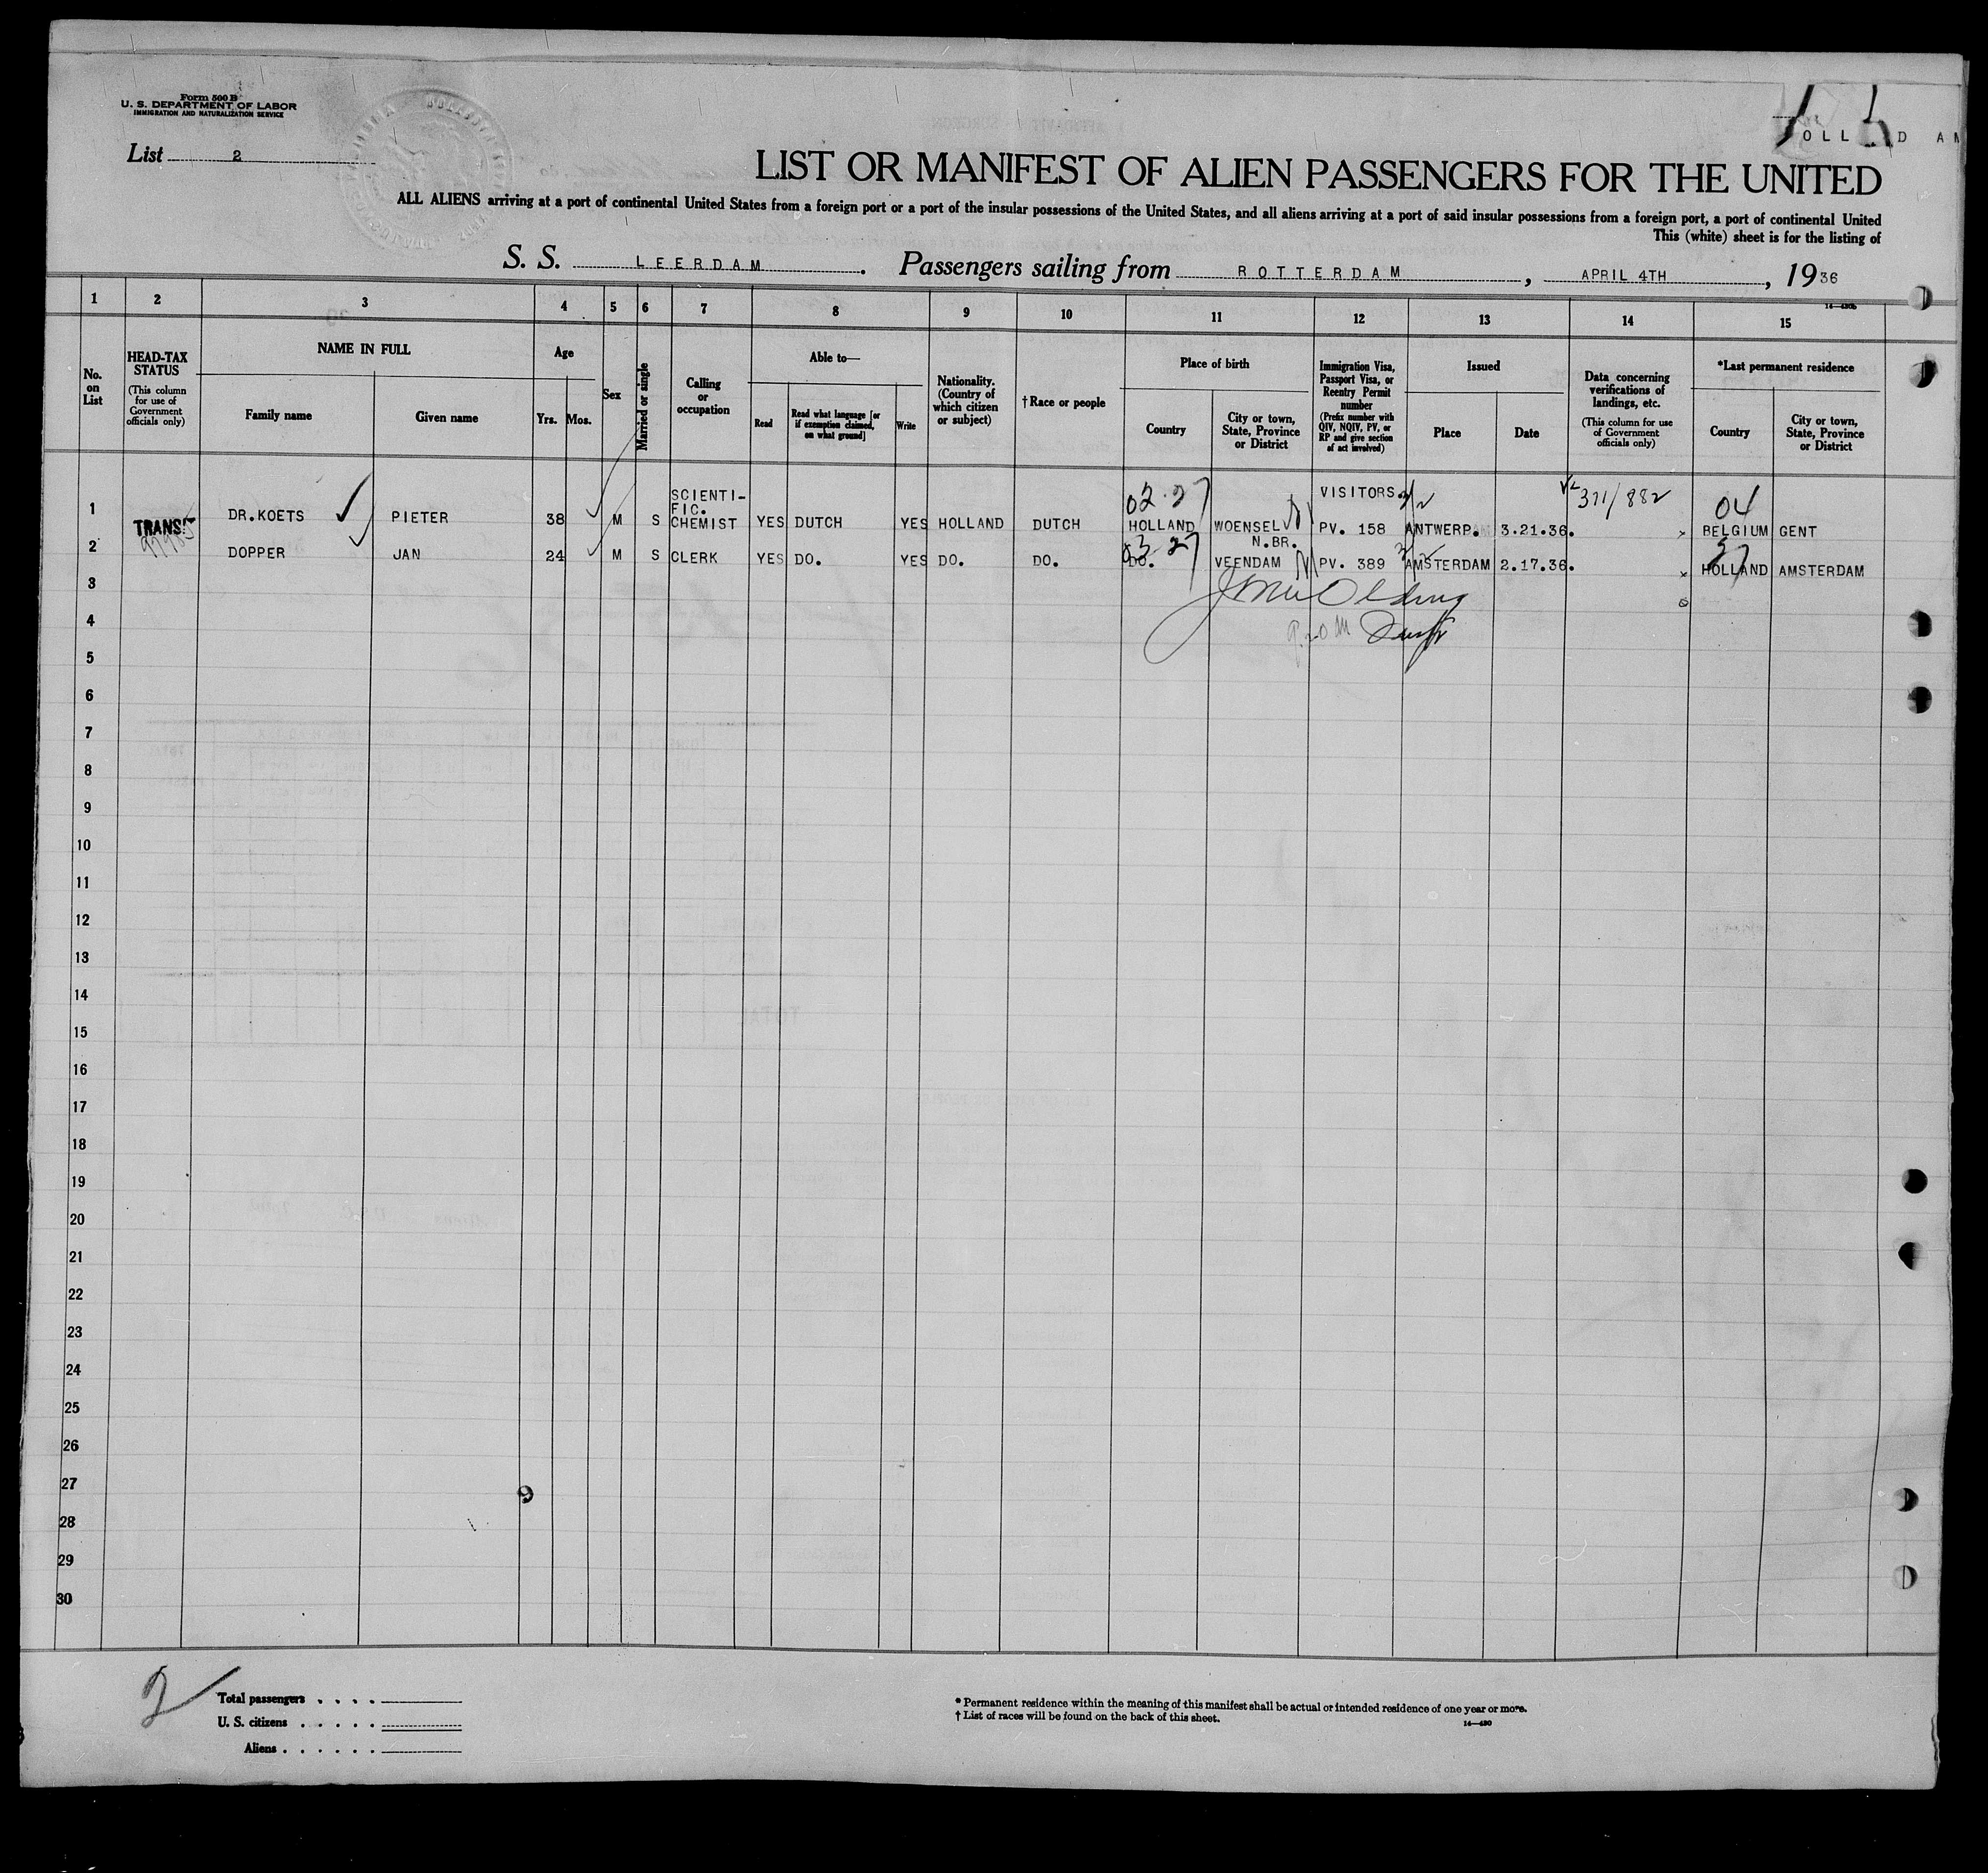 Form 500 B
U. S. DEPARTMENT OF LABOR
IMMIGRATION AND NATURALIZATION SERVICE
List 2
OLL D AM
LIST OR MANIFEST OF ALIEN PASSENGERS FOR THE UNITED
ALL ALIENS arriving at a port of continental United States from a foreign port or a port of the insular possessions of the United States, and all aliens arriving at a port of said insular possessions from a foreign port, a port of continental United
This (white) sheet is for the listing of
S. S. LEERDAM. Passengers sailing from ROTTERDAM, APRIL 4TH, 1936
1 2 3 4 5 6 7 8 9 10 11 12 13 14 15
No. on List
HEAD-TAX STATUS
(This column for use of Government officials only)
NAME IN FULL
Family name
Given name
Age
Yrs.
Mos.
Sex
Married or single
Calling or occupation
Able to—
Read
Read what language [or if exemption claimed, on what ground]
Write
Nationality. (Country of which citizen or subject)
†Race or people
Place of birth
Country
City or town, State, Province or District
Immigration Visa, Passport Visa, or Reentry Permit number
(Prefix number with QIV, NQIV, PV, or RP and give section of act involved)
Issued
Place
Date
Data concerning verifications of landings, etc.
(This column for use of Government officials only)
*Last permanent residence
Country
City or town, State, Province or District
02-27
371/882
04
1 TRANSIT DR.KOETS PIETER 38 M S SCIENTI-FIC. CHEMIST YES DUTCH YES HOLLAND DUTCH HOLLAND WOENSEL N.BR. VISITORS PV. 158 ANTWERP. 3.21.36. BELGIUM GENT
03-27
37
2 DOPPER JAN 24 M S CLERK YES DO. YES DO. DO. DO. VEENDAM PV. 389 AMSTERDAM 2.17.36. HOLLAND AMSTERDAM
3
4
5
6
7
8
9
10
11
12
13
14
15
16
17
18
19
20
21
22
23
24
25
26
27
28
29
30
2
Total passengers . . . .
U. S. citizens . . . . .
Aliens . . . . . .
* Permanent residence within the meaning of this manifest shall be actual or intended residence of one year or more.
† List of races will be found on the back of this sheet.
14—430